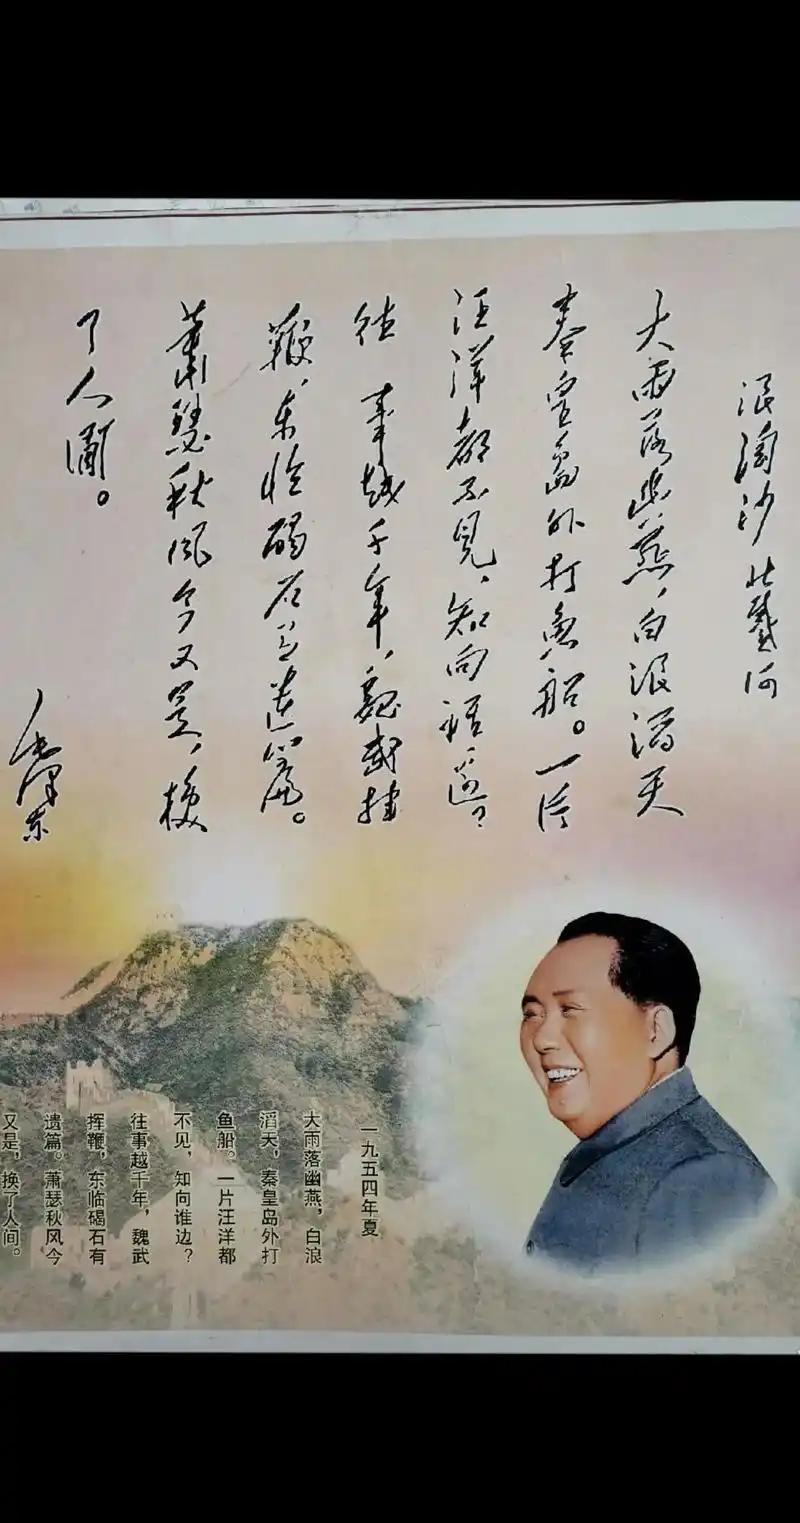 浪淘沙 北戴河
大雨落幽燕，白浪滔天
秦皇岛外打鱼船。一片
汪洋都不见，知向谁边？
往事越千年，魏武挥
鞭，东临碣石有遗篇。
萧瑟秋风今又是，换
了人间。
毛泽东
一九五四年夏
大雨落幽燕，白浪
滔天，秦皇岛外打
鱼船。一片汪洋都
不见，知向谁边？
往事越千年，魏武
挥鞭，东临碣石有
遗篇。萧瑟秋风今
又是，换了人间。